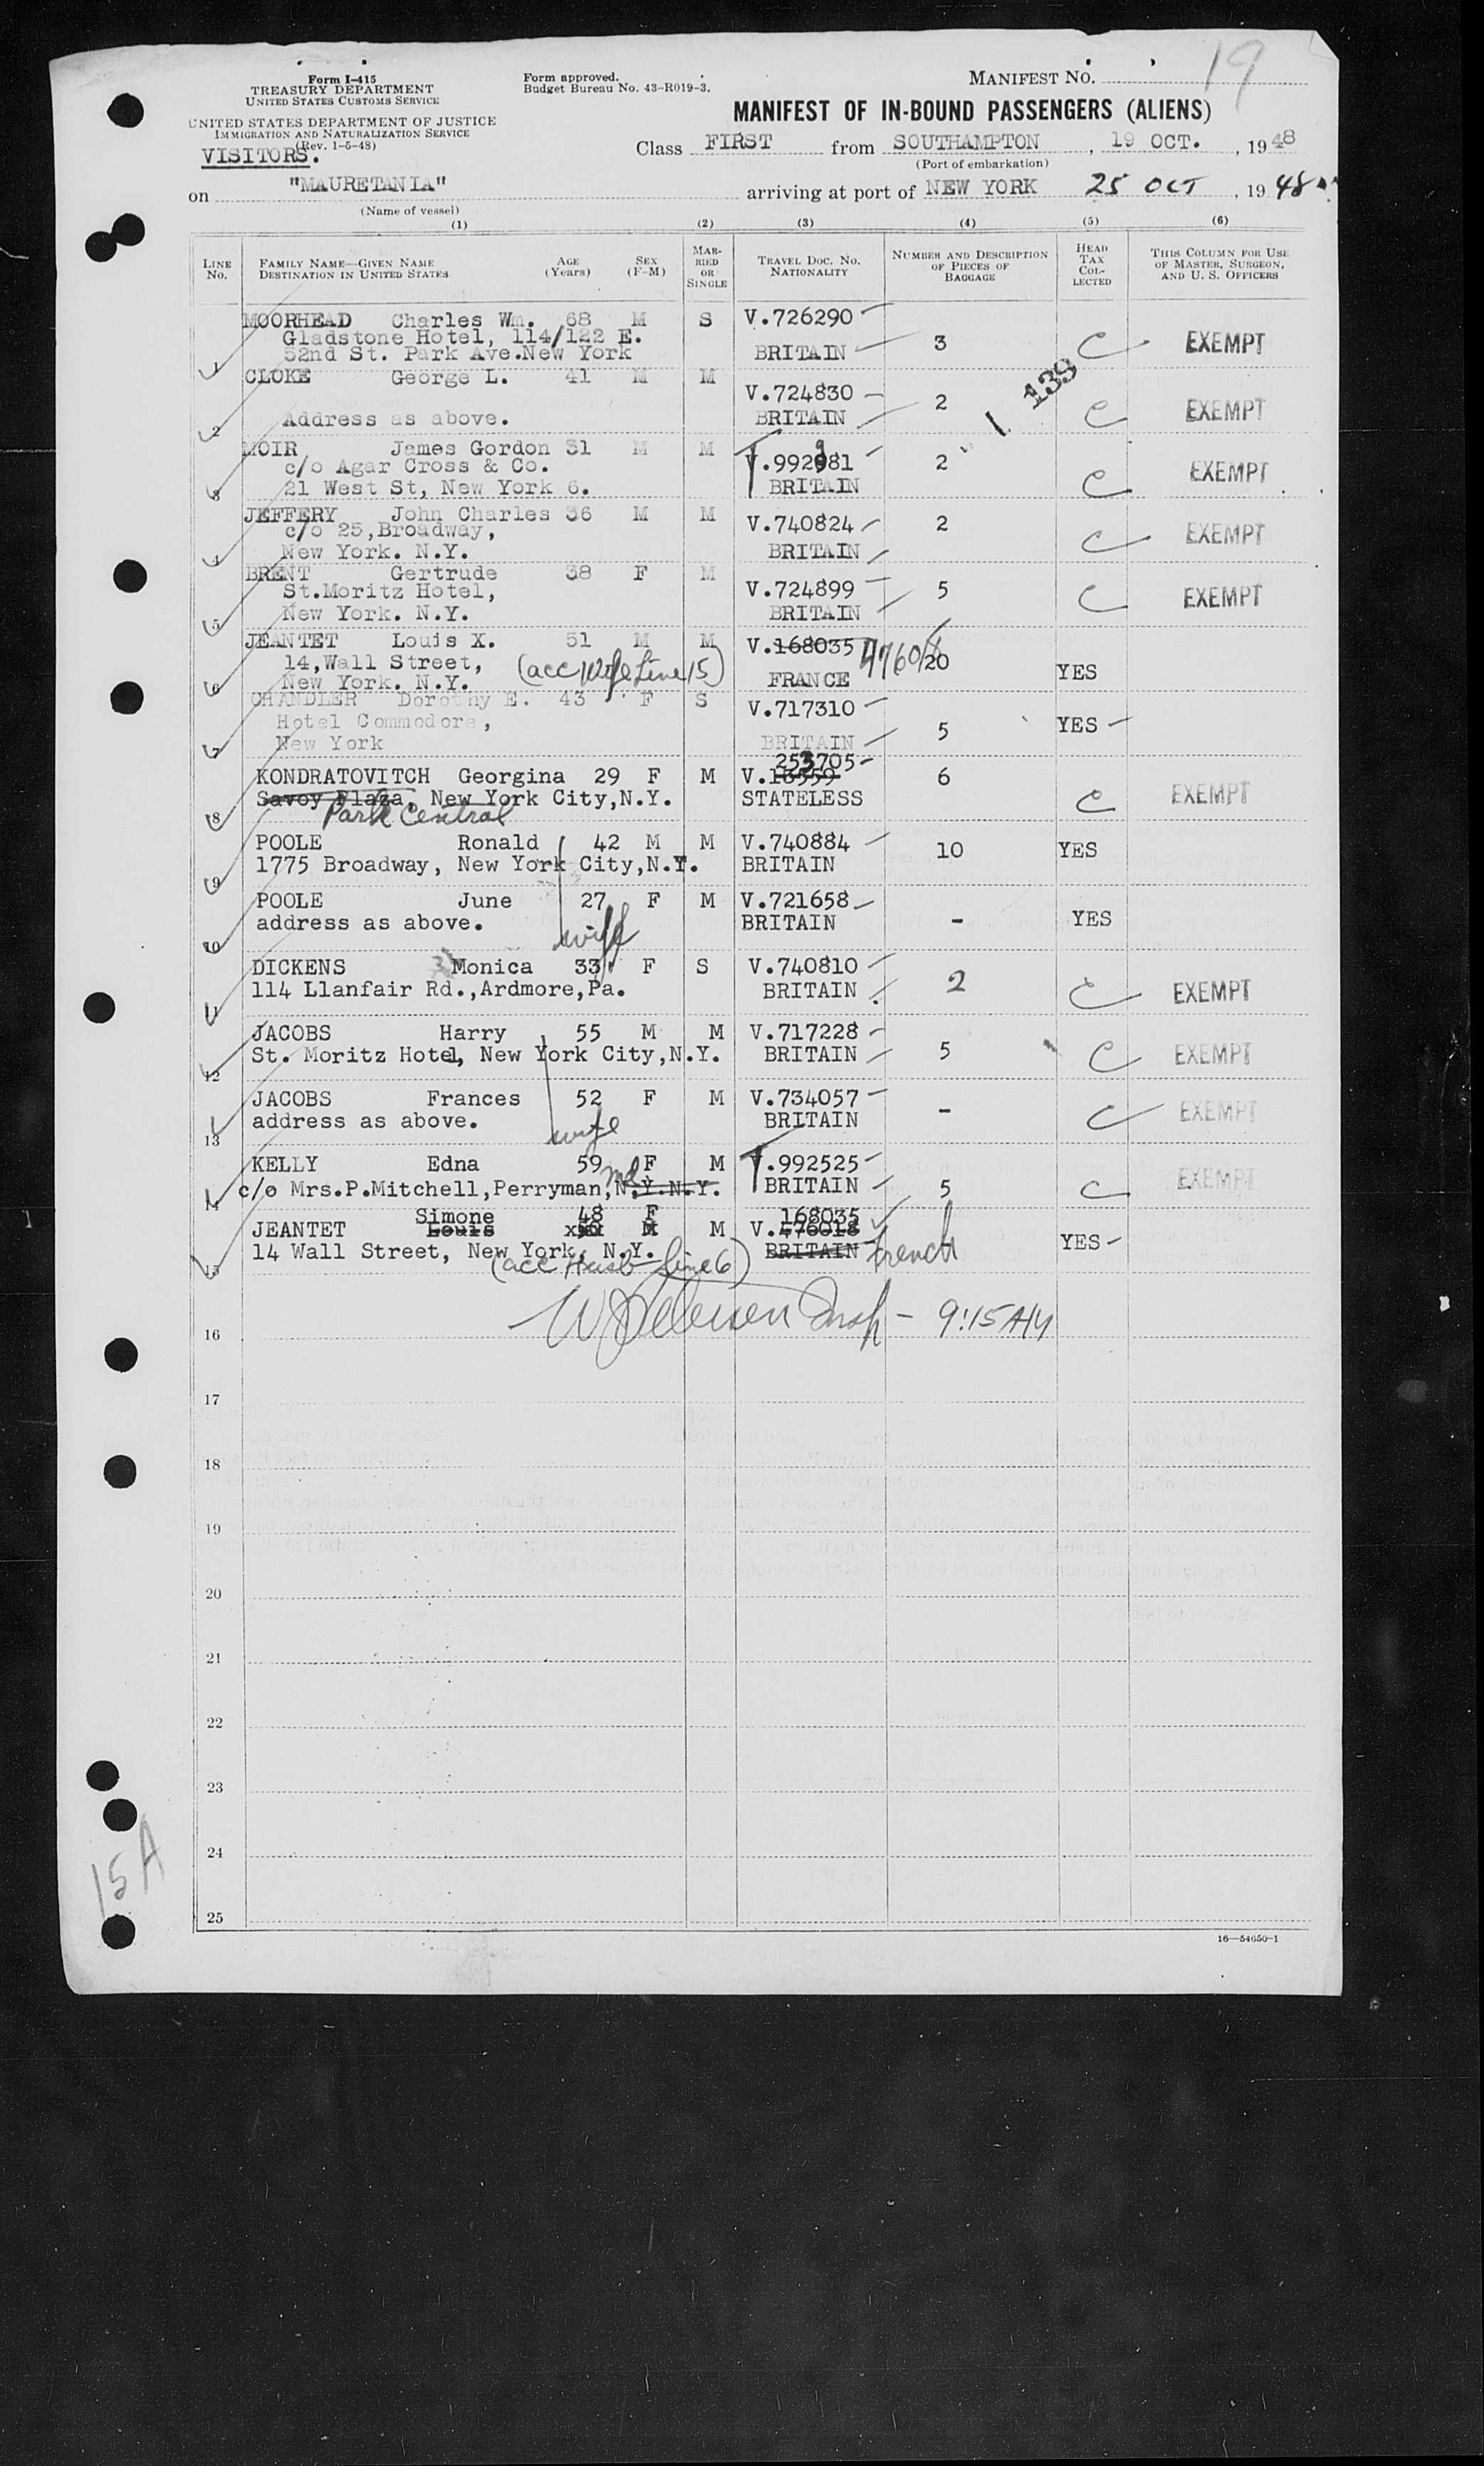 19
Form I-415
TREASURY DEPARTMENT
UNITED STATES CUSTOMS SERVICE
UNITED STATES DEPARTMENT OF JUSTICE
IMMIGRATION AND NATURALIZATION SERVICE
(Rev. 1-5-48)
VISITORS.
Form approved.
Budget Bureau No. 43-R019-3.
MANIFEST NO.
MANIFEST OF IN-BOUND PASSENGERS (ALIENS)
Class FIRST from SOUTHAMPTON, 19 OCT., 1948
(Port of embarkation)
on "MAURETANIA" arriving at port of NEW YORK 25 OCT, 1948
(Name of vessel)
(1) (2) (3) (4) (5) (6)
LINE No. FAMILY NAME—GIVEN NAME DESTINATION IN UNITED STATES AGE (Years) SEX (F-M) MARRIED OR SINGLE TRAVEL DOC. NO. NATIONALITY NUMBER AND DESCRIPTION OF PIECES OF BAGGAGE HEAD TAX COLLECTED THIS COLUMN FOR USE OF MASTER, SURGEON, AND U. S. OFFICERS
MOORHEAD Charles Wm. 68 M S V.726290
Gladstone Hotel, 114/122 E.
1 52nd St. Park Ave.New York BRITAIN 3 C EXEMPT
CLOKE George L. 41 M M V.724830
2 Address as above. BRITAIN 2 C EXEMPT
1 139
MOIR James Gordon 31 M M V.992981
c/o Agar Cross & Co. 9
3 21 West St, New York 6. BRITAIN 2 C EXEMPT
JEFFERY John Charles 36 M M V.740824 2
c/o 25,Broadway,
4 New York. N.Y. BRITAIN C EXEMPT
BRENT Gertrude 38 F M V.724899 5
St.Moritz Hotel,
5 New York. N.Y. BRITAIN C EXEMPT
JEANTET Louis X. 51 M M V.168035 476018
14,Wall Street, (acc Wife Line 15) 20
6 New York. N.Y. FRANCE YES
CHANDLER Dorothy E. 43 F S V.717310
Hotel Commodore, 5 YES
7 New York BRITAIN
253705
KONDRATOVITCH Georgina 29 F M V.16559 6
Savoy Plaza, New York City,N.Y. STATELESS C EXEMPT
8 Park Central
POOLE Ronald 42 M M V.740884 10 YES
9 1775 Broadway, New York City,N.Y. BRITAIN
POOLE June 27 F M V.721658
10 address as above. wife BRITAIN - YES
DICKENS Monica 33 F S V.740810
11 114 Llanfair Rd.,Ardmore,Pa. BRITAIN 2 C EXEMPT
JACOBS Harry 55 M M V.717228
12 St. Moritz Hotel, New York City,N.Y. BRITAIN 5 C EXEMPT
JACOBS Frances 52 F M V.734057
13 address as above. wife BRITAIN - C EXEMPT
KELLY Edna 59 F M V.992525
14 c/o Mrs.P.Mitchell,Perryman,N.Y.N.Y. Md BRITAIN 5 C EXEMPT
Simone 48 F 168035
JEANTET Louis M M V.476018
15 14 Wall Street, New York, N.Y. BRITAIN French YES
(acc Husb line 6)
Insp - 9:15 AM
16
17
18
19
20
21
22
23
24
25
15A
16—54650-1